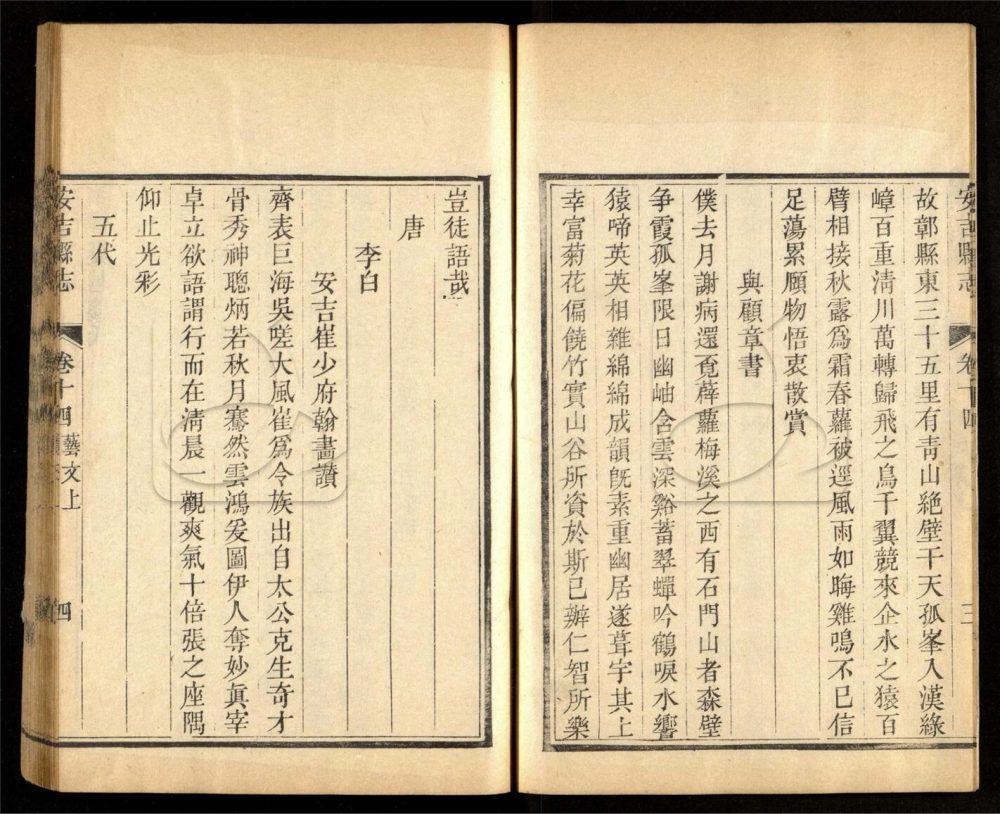 安吉縣志 卷十四 三
故鄣縣東三十五里有靑山絶壁干天孤峯入漢綠
嶂百重淸川萬轉歸飛之鳥千翼競來企水之猿百
臂相接秋露爲霜春蘿被逕風雨如晦雞鳴不已信
足蕩累願物悟衷散賞
與顧章書
僕去月謝病還覔薜蘿梅溪之西有石門山者森壁
争霞孤峯限日幽岫含雲深谿蓄翠蟬吟鶴唳水響
猿啼英英相雜綿綿成韻旣素重幽居遂葺宇其上
幸富菊花偏饒竹實山谷所資於斯已辦仁智所樂
豈徒語哉
唐
李白
安吉崔少府翰畵讃
齊表巨海吳嗟大風崔爲令族出自太公克生奇才
骨秀神聰炳若秋月騫然雲鴻爰圖伊人奪妙眞宰
卓立欲語謂行而在淸晨一觀爽氣十倍張之座隅
仰止光彩
五代
安吉縣志 卷十四 藝文上 四